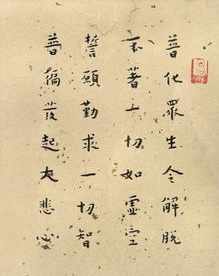 普化眾生令解脫
不著一切如虛空
誓願勤求一切智
普徧發起大悲心